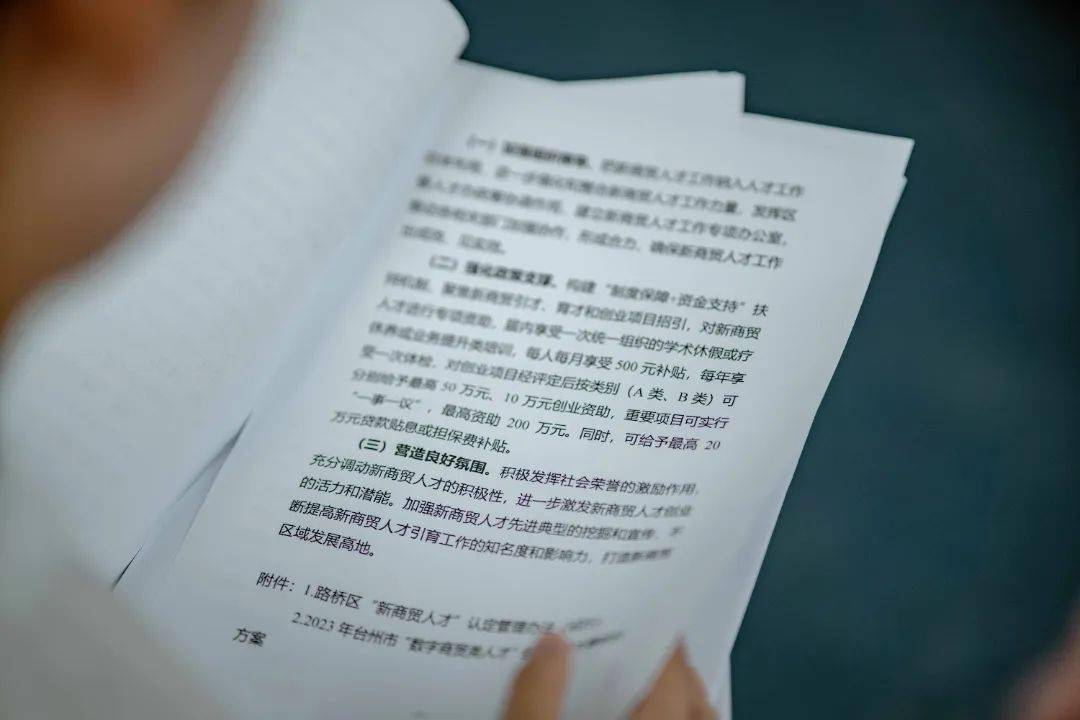 （一）加强组织领导。把新商贸人才工作纳入人才工作
进一步强化和整合新商贸人才工作力量，发挥区
建立新商贸人才工作专项办公室，
形成合力，确保新商贸人才工作
见实效。
（二）强化政策支撑。构建“制度保障+资金支持”扶
持机制，聚焦新商贸引才、育才和创业项目招引，对新商贸
人才进行专项资助，届内享受一次统一组织的学术休假或疗
休养或业务提升类培训，每人每月享受500元补贴，每年享
受一次体检，对创业项目经评定后按类别（A类、B类）可
分别给予最高50万元、10万元创业资助，重要项目可实行
“一事一议”，最高资助200万元。同时，可给予最高20
万元贷款贴息或担保费补贴。
（三）营造良好氛围。积极发挥社会荣誉的激励作用，
充分调动新商贸人才的积极性，进一步激发新商贸人才创业
的活力和潜能。加强新商贸人才先进典型的挖掘和宣传，不
断提高新商贸人才引育工作的知名度和影响力，打造新商贸
区域发展高地。
附件：1.路桥区“新商贸人才”认定管理办法
2.2023年台州市“数字商贸类人才”
方案